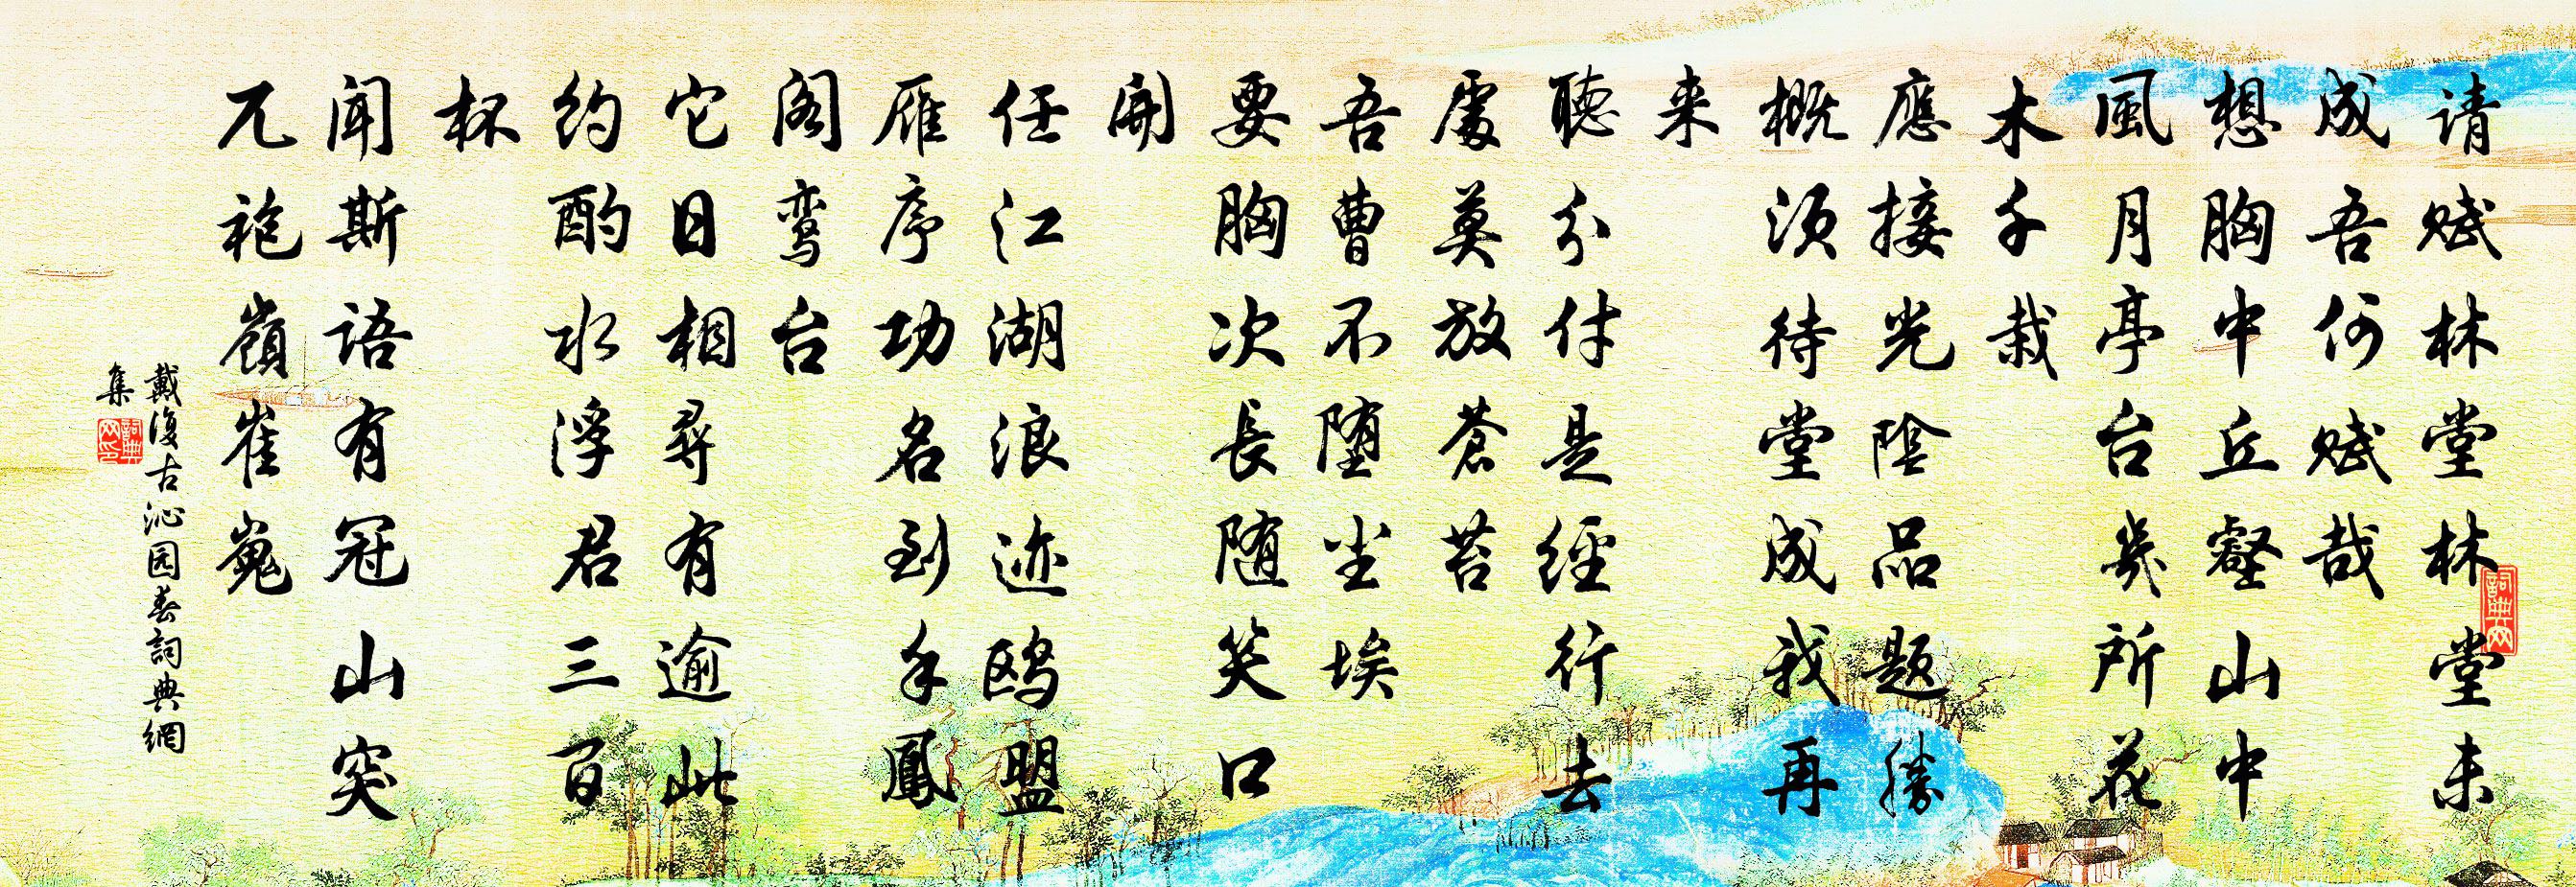 请赋林堂林堂未
成吾何赋哉
想胸中丘壑山中
風月亭台幾所花
木千栽
應接光陰品题勝
概须待堂成我再
来
聽分付是經行去
處莫放蒼苔
吾曹不堕尘埃
要胸次長随笑口
開
任江湖浪迹鸥盟
雁序功名到手鳳
阁鸾台
它日相尋有逾此
约酌水浮君三百
杯
闻斯語有冠山突
兀袍嶺崔嵬
戴復古沁园春詞典網
集
詞典网
詞典网印